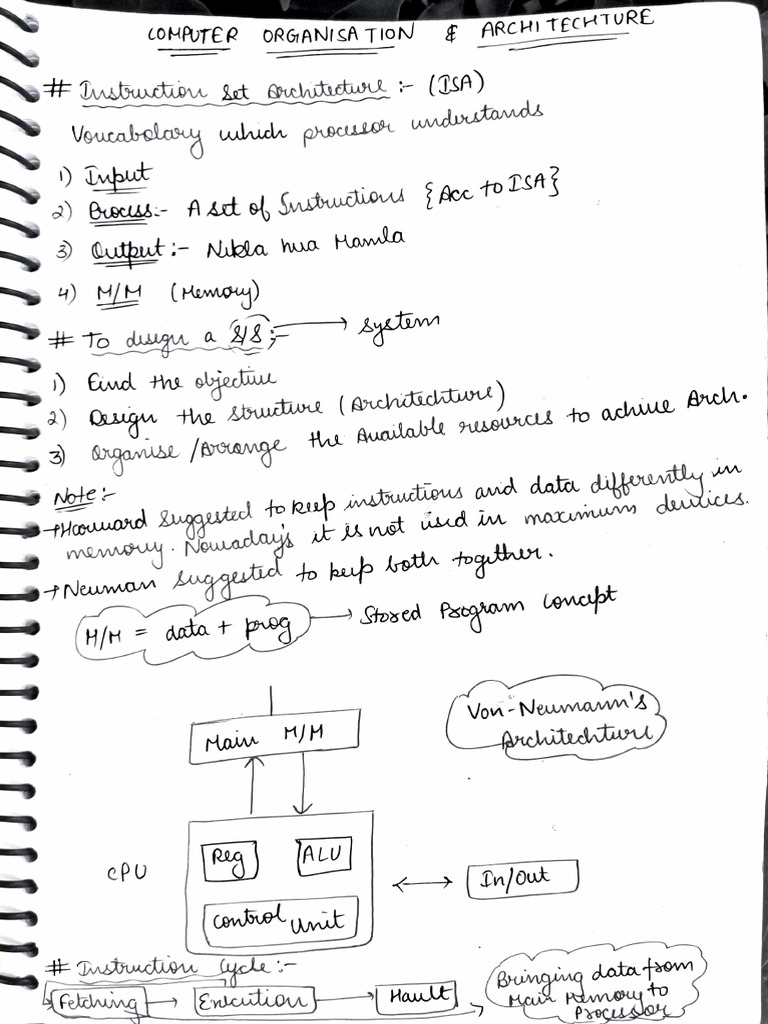 COMPUTER ORGANISATION & ARCHITECHTURE
# Instruction Set Architecture :- (ISA)
Voucabolary which processor understands
1) Input
2) Process:- A set of Instructions {Acc to ISA}
3) Output :- Nikla hua Mamla
4) M/M (Memory)
# To design a S/S :- → System
1) Find the objective
2) Design the structure (Architechture)
3) Organise / Arrange the Available resources to achive Arch.
Note :-
→ Haruard Suggested to keep instructions and data differently in
memory. Nowaday's it is not used in maximum devices.
→ Neuman suggested to keep both together.
M/M = data + prog → Stored Program Concept
Main M/M
Von-Neumann's
Architechture
CPU
Reg
ALU
Control Unit
In/Out
# Instruction Cycle :-
Fetching → Execution → Hault
Bringing data from
Main Memory to
Processor